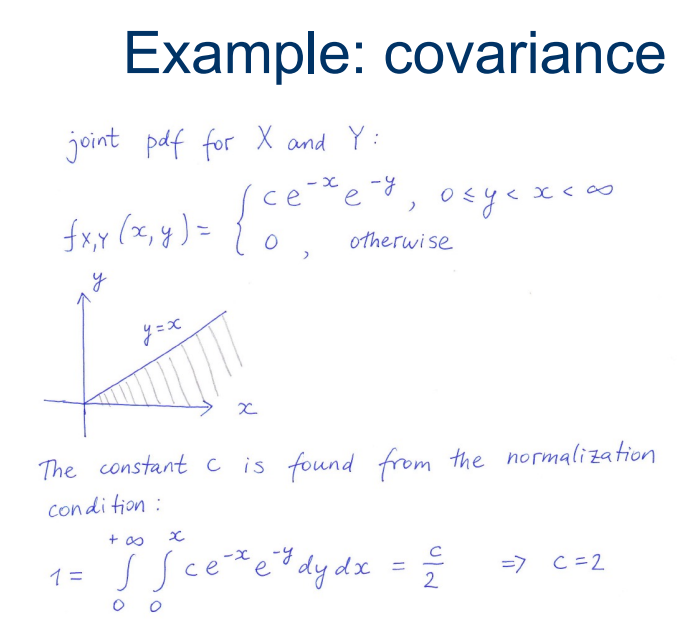 Example: covariance
joint pdf for X and Y:
f_{X,Y}(x,y) = { ce^{-x}e^{-y}, 0 ≤ y < x < ∞
0, otherwise
y
y=x
x
The constant c is found from the normalization
condition:
1 = ∫_0^{+∞} ∫_0^x ce^{-x}e^{-y}dydx = c/2 => c=2